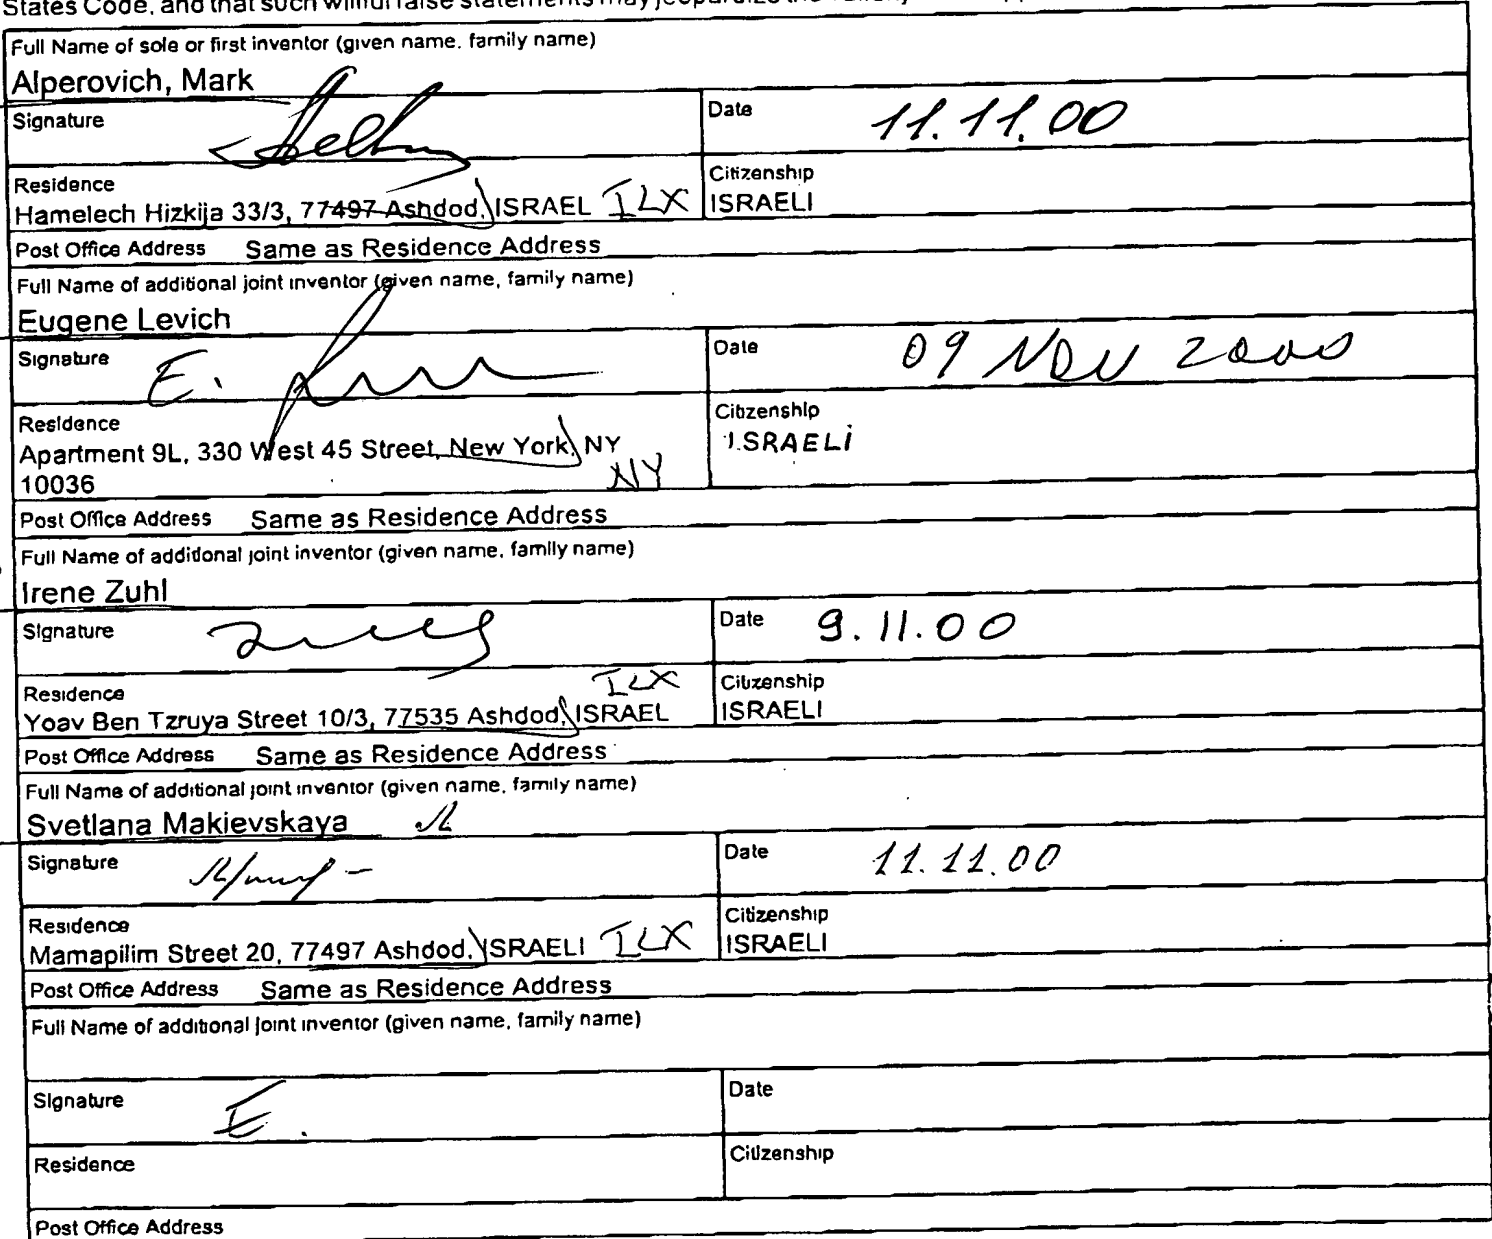 States Code, and that such willful false statements may jeopardize the
Full Name of sole or first inventor (given name, family name)
Alperovich, Mark
Signature
Date 11.11.00
Residence
Citizenship
Hamelech Hizkija 33/3, 77497 Ashdod, ISRAEL ILX
ISRAELI
Post Office Address Same as Residence Address
Full Name of additional joint inventor (given name, family name)
Eugene Levich
Signature E.
Date 09 NOV 2000
Residence
Citizenship
Apartment 9L, 330 West 45 Street, New York, NY
ISRAELI
10036 NY
Post Office Address Same as Residence Address
Full Name of additional joint inventor (given name, family name)
Irene Zuhl
Signature
Date 9.11.00
Residence ILX
Citizenship
Yoav Ben Tzruya Street 10/3, 77535 Ashdod, ISRAEL
ISRAELI
Post Office Address Same as Residence Address
Full Name of additional joint inventor (given name, family name)
Svetlana Makievskaya
Signature
Date 11.11.00
Residence
Citizenship
Mamapilim Street 20, 77497 Ashdod, ISRAELI ILX
ISRAELI
Post Office Address Same as Residence Address
Full Name of additional joint inventor (given name, family name)
Signature E.
Date
Residence
Citizenship
Post Office Address